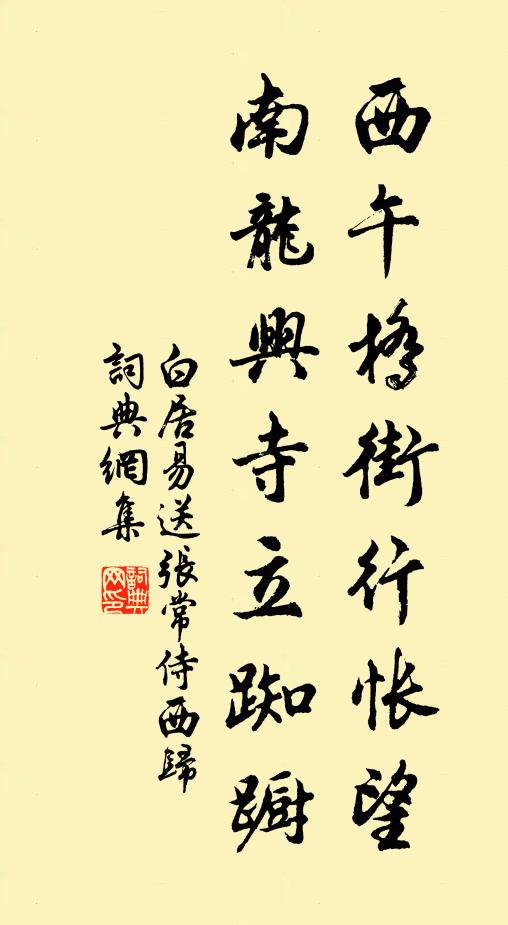 西午橋街行悵望
南龍興寺立踟躕
白居易送張常侍西歸
詞典網集
詞典网印